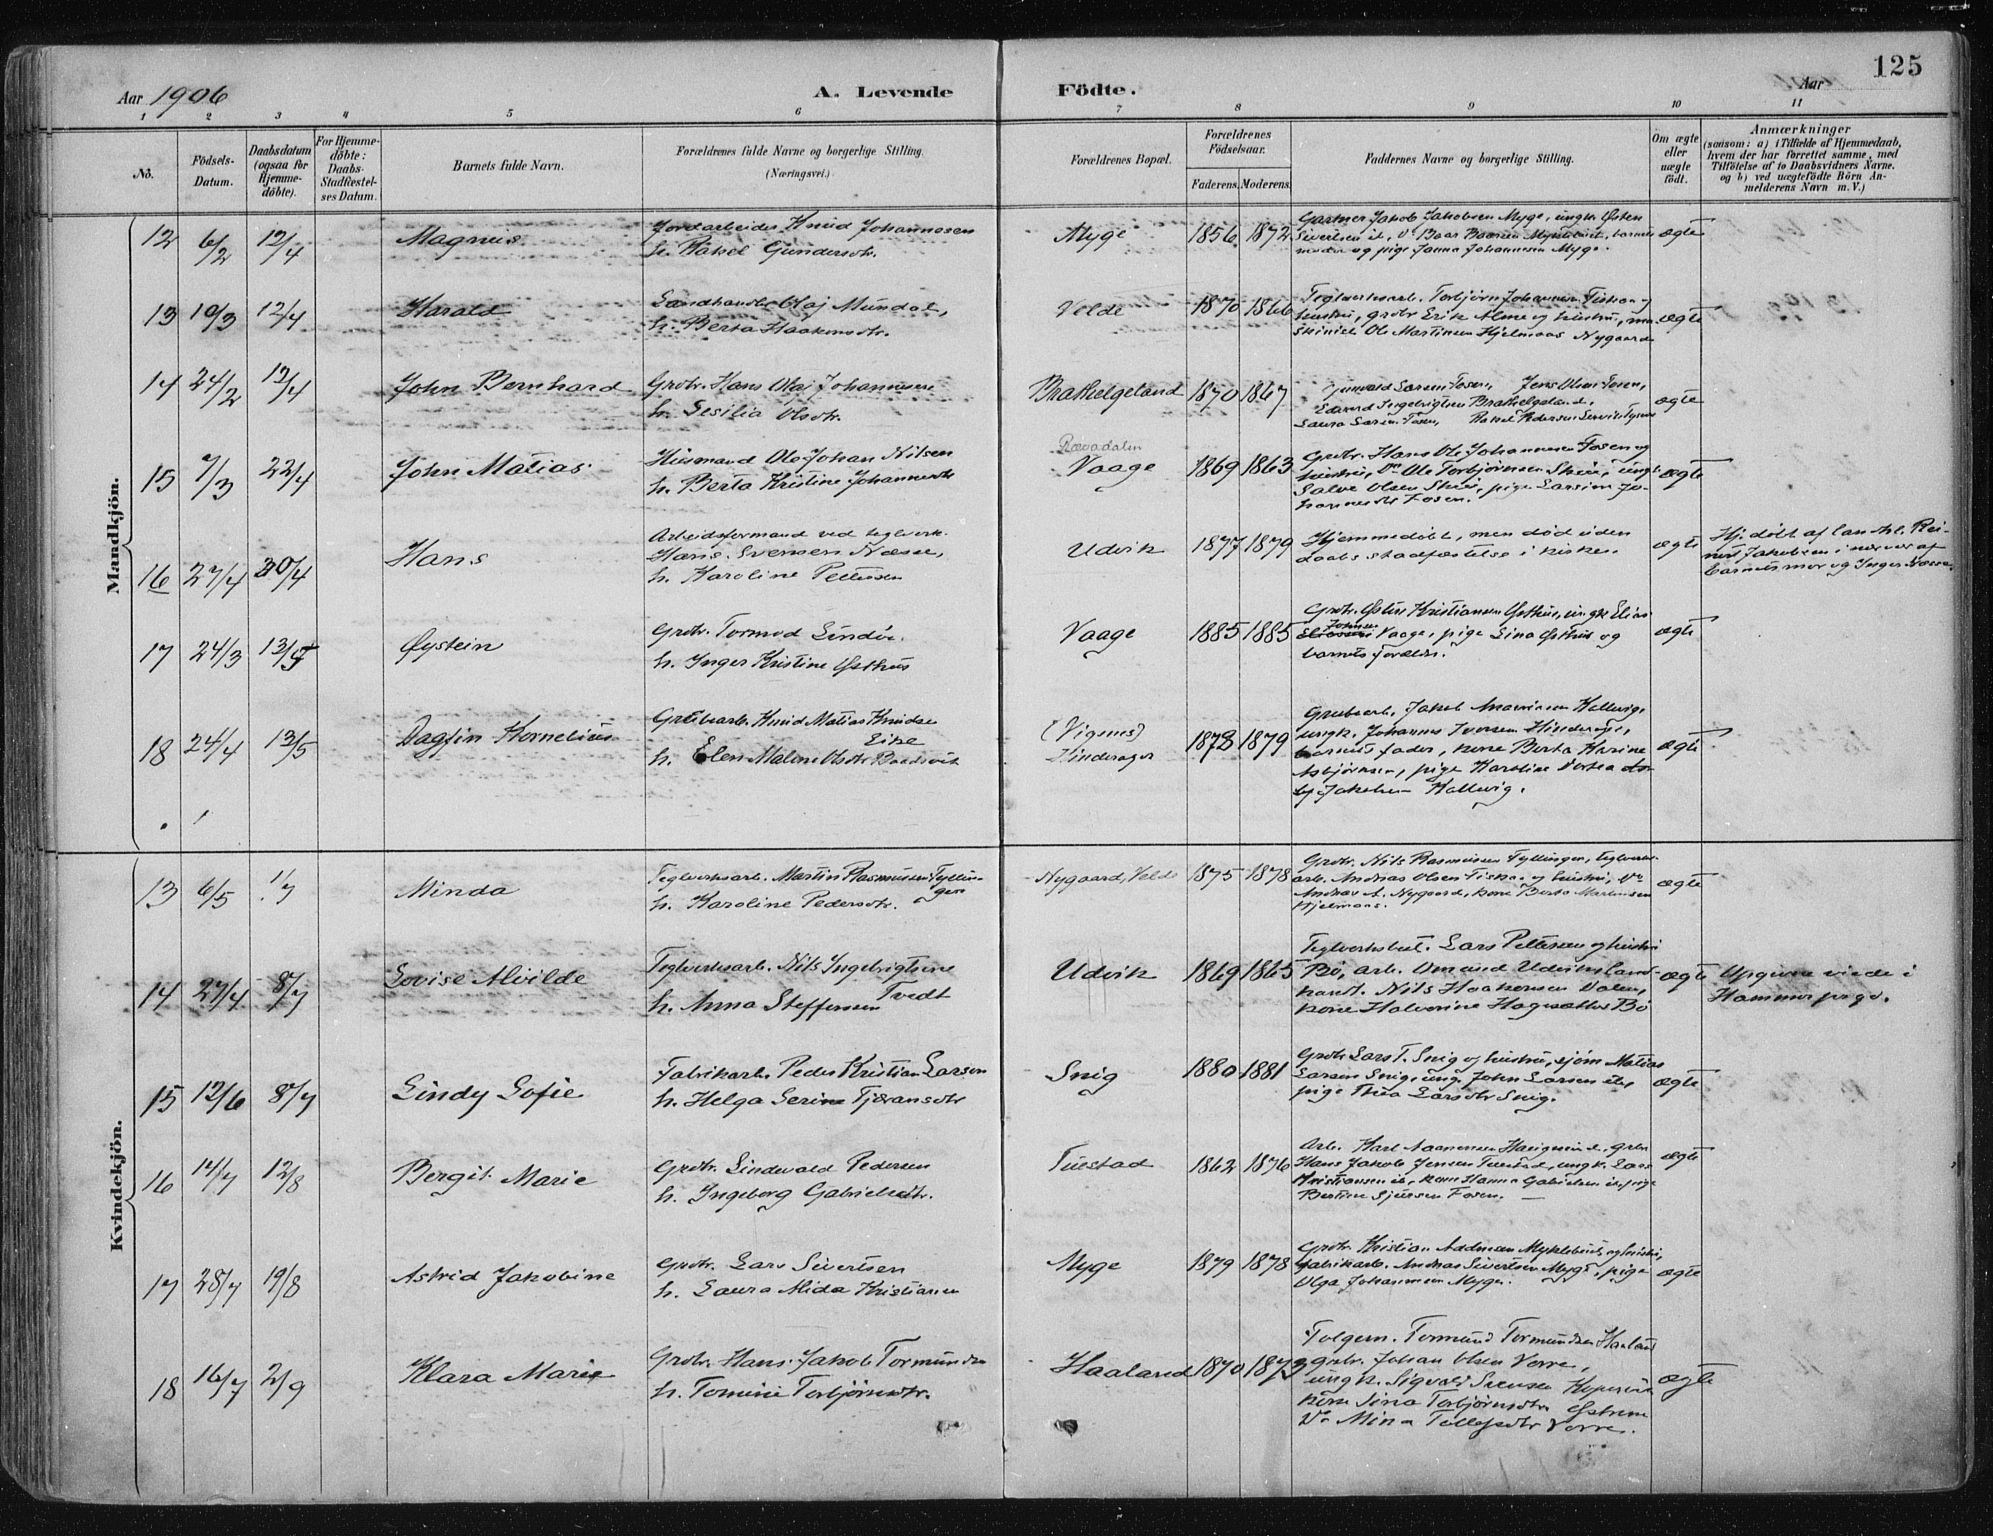 125
Aar 1906
A. Levende Födte.
Aar
1 2 3 4 5 6 7 8 9 10 11
No.
Födsels-Datum.
Daabsdatum (ogsaa for Hjemme-döbte).
For Hjemme-döbte: Daabs-Stadfæstel-ses Datum.
Barnets fulde Navn.
Forældrenes fulde Navne og borgerlige Stilling. (Næringsvei.)
Forældrenes Bopæl.
Forældrenes Födselsaar.
Faderens. Moderens.
Faddernes Navne og borgerlige Stilling.
Om ægte eller uægte födt.
Anmærkninger
(saasom: a) i Tilfælde af Hjemmedaab,
hvem der har forrettet samme, med
Tilföielse af to Daabsvidners Navne.
og b) ved uægtefödte Börn An-
melderens Navn m. V.)
Mandkjön.
12 6/2 12/4 Magnus
Jordarbeider Knud Johannesen
h. Rakel Gundersdtr.
Myge 1856 1872
Gartner Jakob Jakobsen Myge, ungk. Østen
ægte
13 19/3 12/4 Harald
Olaj Mundal,
h. Berta Haakonsdtr.
Velde 1870 1866
Teglverksarb. Torbjørn Johannesen Tiskon og
hustru, grdbr Erik Alme og hustru, ma-
skinist Ole Martinsen Hjelmaas Nygaard
ægte
14 24/2 12/4 John Bernhard
Grdbr. Hans Olaj Johannesen
h. Sesilia Olsdtr.
Brathelgeland 1870 1867
Jens Olsen Fosen,
Edvard Ingebrigtsen Brathelgeland,
ægte
15 7/3 22/4 John Matias
Husmand Ole Johan Nilsen
h. Berta Kristine Johannesdtr
Rævadalen
Vaage 1869 1863
Grdbr. Hans Ole Johannesen Fosen og
hustru, Ole Torbjørnsen
Salve Olsen pige Larsine Jo-
hannesdtr Fosen.
ægte
16 27/4 30/4 Hans
Arbeidsformand ved teglverk.
Hans Svensen Næsse,
h. Karoline Pettersen
Udvik 1877 1879
Hjemmedøbt, men død uden
daabs stadfæstelse i kirke.
ægte
Hj. døbt af Rei-
nert Jakobsen i nærvær af
barnets mor og Inger Næsse.
17 24/3 13/5 Øystein
Grdbr. Tormod Lindøe
h. Inger Kristine Østhus
Vaage 1885 1885
Grdbr. Østen Kristiansen Østhus, ungk Elias
Johnsen
Vaage, pige Lina Østhus og
barnets forældre.
ægte
18 24/4 13/5 Dagfin Kornelius
Grubearb. Knud Matias Knudsen
Eike
h. Elen Maline Olsdtr
(Vigsnes)
Hinderager 1873 1879
Grubearb. Jakob Kallevig,
ungk. Johannes Iversen Hinderager,
barnets fader, kone Berta Karine
Asbjørnsen, pige Karoline Dortea
Jakobsen Kallevig.
ægte
Kvindekjön.
13 6/5 1/7 Minda
Teglverksarb. Martin Rasmussen Tyllin-
gen
h. Karoline Pedersdtr.
Nygaard, Velde 1875 1878
Grdbr. Nils Rasmussen Tyllingen, teglverks-
arb. Andreas Olsen Tiskon og hustru,
Andreas A. Nygaard, kone Berta Martinsen
Hjelmaas.
ægte
14 27/4 8/7 Lovise Alvilde
Teglverksarb. Nils Ingebrigtsen
Tvedt
h. Anna Steffensen
Udvik 1869 1865
Teglverksbest. Lars Pettersen og hustru
Bø, arb. Omund Udvik, land-
Nils Haakonsen Dalen,
kone Halvorine Hagesæther Bø
ægte
Opgivne viede i
Hammer præg.
15 12/6 8/7 Lindy Sofie
Fabrikarb. Peder Kristian Larsen
h. Helga Serine Tjøransdtr
Snig 1880 1881
Grdbr Lars T. Snig og hustru, sjøm Matias
Larsen Snig, ungk. John Larsen ib.,
pige Thea Larsdtr Snig.
ægte
16 14/7 12/8 Bergit Marie
Grdbr. Lindevald Pedersen
h. Ingeborg Gabrielsdtr.
Tuestad 1862 1876
Arb. Karl
Hans Jakob Jensen Tuestad, ungk. Lars
Kristiansen ib, kone Hanna Gabrielsen ib, pige
Bertine Sjursen Fosen.
ægte
17 28/7 19/8 Astrid Jakobine
Grdbr. Lars Sivertsen
h. Laura Alida Kristiansen
Myge 1879 1878
Grdbr Kristian Aadnesen Myklebust og hustru,
fabrikarb. Andreas Sivertsen Myge, pige
Olga Johannesen Myge.
ægte
18 16/7 2/9 Klara Marie
Grdbr. Hans Jakob Tormundsen
h. Tomine Torbjørnsdtr.
Haaland 1870 1873
Folgem. Tormund Tormundsen Haaland
grdbr. Johan Olsen Vorre,
ungk. Sigvald Svensen Kopervik
kone Sina Torbjørnsdtr Østrem
Do Mina Tollefsdtr Vorre.
ægte